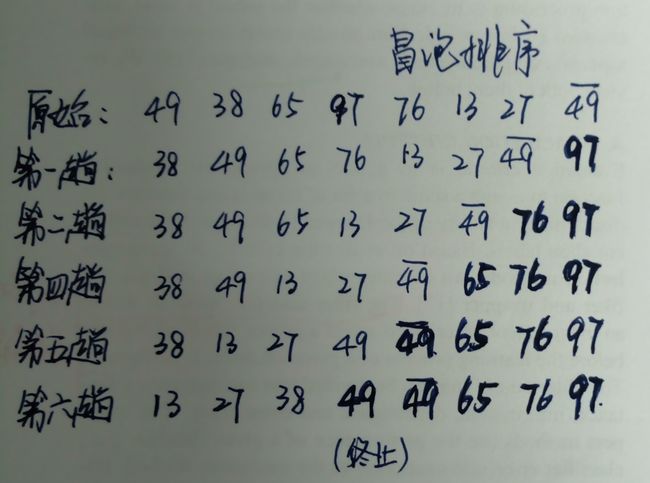 冒泡排序
原始: 49 38 65 97 76 13 27 4̅9̅
第一趟: 38 49 65 76 13 27 4̅9̅ 97
第二趟 38 49 65 13 27 4̅9̅ 76 97
第四趟 38 49 13 27 4̅9̅ 65 76 97
第五趟 38 13 27 49 4̅9̅ 65 76 97
第六趟 13 27 38 49 4̅9̅ 65 76 97
(终止)